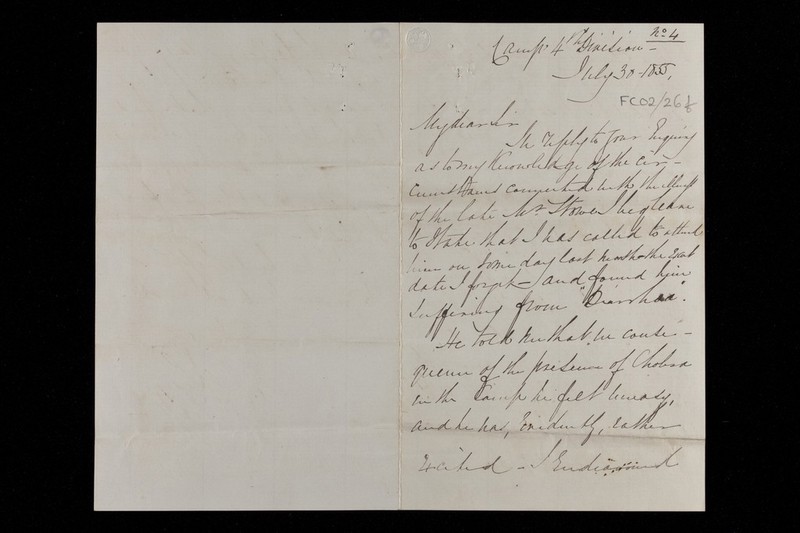 No. 4
Camp 4th Division -
July 30 - 1855,
FCO2/26
My dear Sir
In reply to your Enquiry
as to my Knowledge of the cir-
cumstances connected with the illness
of the late Mr. Stowe I beg leave
to State that I was called to attend
him on Some day last month - the Exact
date I forget - and found him
Suffering from "Diarrhœa".
He told me that in conse-
quence of the presence of Cholera
in the Camp he felt uneasy,
and he was, Evidently, rather
Excited - I Endeavoured